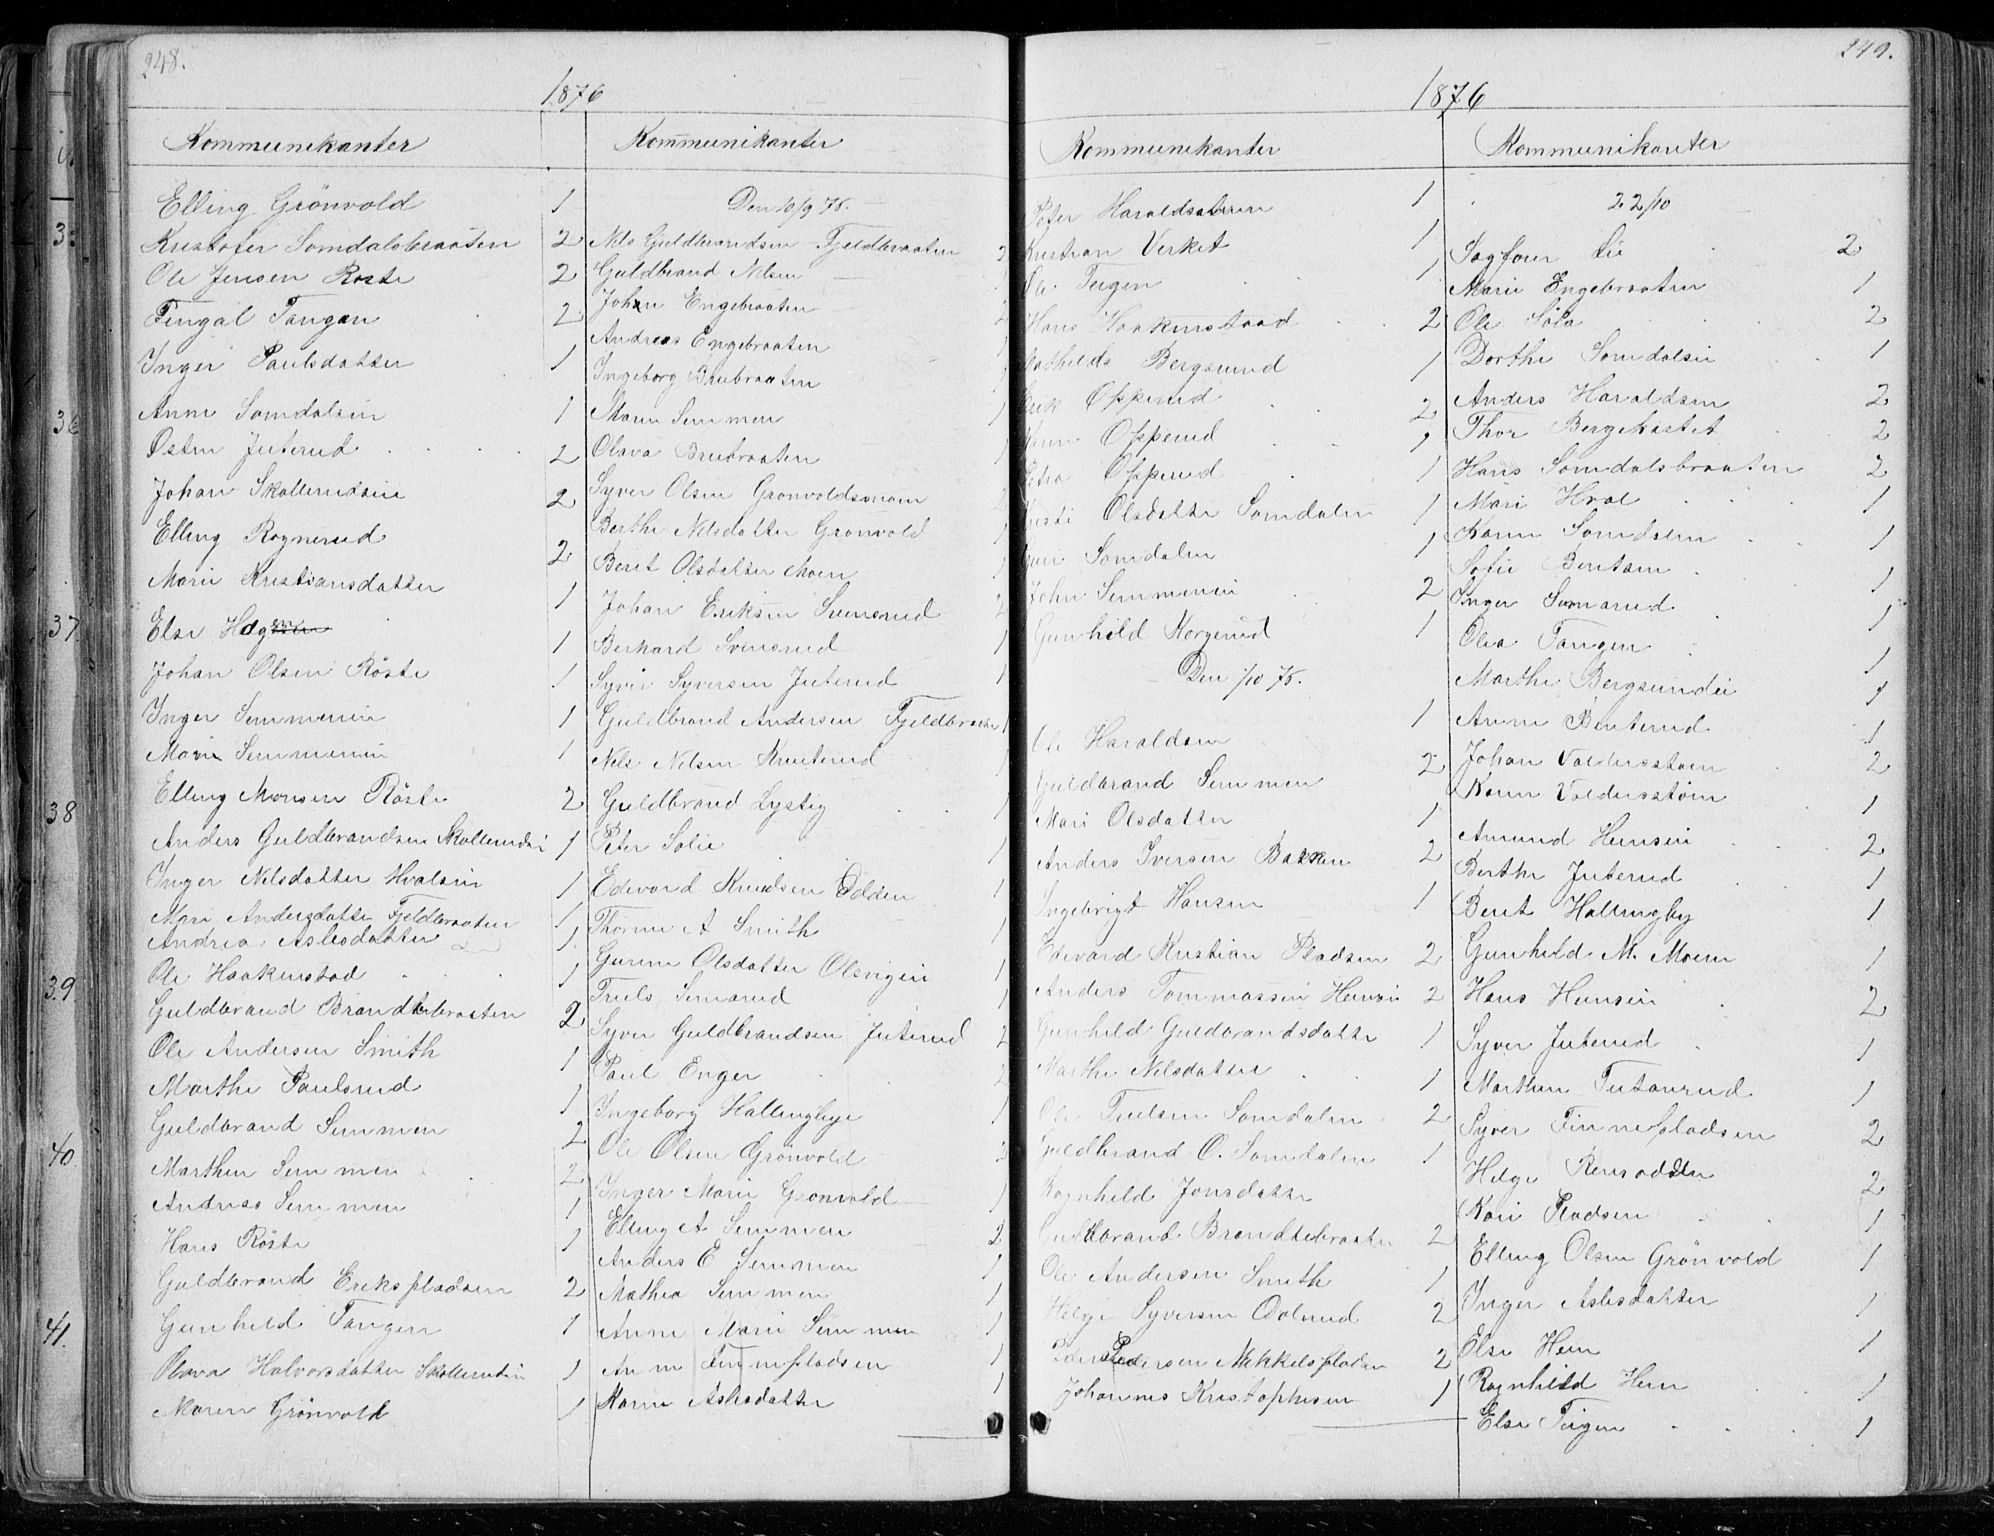 248.
1876
Kommunikanter
Elling Grönvold 1
Kristofer Somdalsbraaten 2
Ole Jensen Röste 2
Fingal Tangen 2
Inger Paulsdatter 1
Anne Somdalsin 1
Østen Juterud 2
Johan Skollerudsin 2
Elling Rognerud 2
Marie Kristiansdatter 1
Else Hag 1
Johan Olsen Röste 1
Inger Semmenin 1
Marie Semmenin 1
Elling Monsen Röste 2
Anders Guldbrandsen Skollerudsi 1
Inger Nilsdatter Hvalsin 1
Mari Andersdatte Fjeldbraaten 1
Andrea Aslesdatter 1
Ole Haakenstad 1
Guldbrand Brandtebraaten 2
Ole Andersen Smith 1
Marthe Paulsrud 1
Guldbrand Semmen 2
Marthin Semmen 2
Andreas Semmen 1
Hans Röste 1
Guldbrand Erikspladsen 2
Gunhild Tangen 1
Olava Halvorsdatter Skollerudin 1
Maren Grönvold 1
Kommunikanter
Den 10/9 76.
Nils Guldbrandsen Fjeldbraaten 2
Guldbrand Nilsen 1
Johan Engebraaten 2
Andreas Engebraaten 1
Ingeborg Brubraaten 1
Maren Semmen 1
Olava Brubraaten 1
Syver Olsen Grönvoldsmoen 2
Berthe Nilsdatter Grönvold 1
Berit Olsdatter Moen 1
Johan Eriksen Svensrud 2
Berhard Svensrud 1
Syver Syversen Juterud 1
Guldbrand Andersen Fjeldbraaten 1
Nils Nilsen Knuterud 1
Guldbrand Lystig 1
Peter Solie 1
Edevard Knudsen Odden 1
Thorine A Smith 1
Gurine Olsdatter Olsvigen 1
Truls Semarud 1
Syver Guldbrandsen Juterud 2
Paul Enger 2
Ingeborg Hallingbye 1
Ole Olsen Grönvold 2
Inger Marie Gronvold 1
Elling A Semmen 2
Anders E Semmen 1
Mathea Semmen 1
Anne Marie Semmen 1
Anne Finnepladsen 1
Karen Aslesdatter 1
249.
1876
Kommunikanter
Peter Haraldsatern 1
Kristian Verket 1
Ole Teigen 1
Hans Haakenstaad 2
Mathilde Bergsund 1
Erik Opperud 2
Opperud 1
Petra Opperud 1
Olsdatte Somdalen 1
Guri Somdalen 1
John Semmenin 2
Gunhild Horgerud 1
Den 1/10 76.
Ole Haraldsen 1
Guldbrand Semmen 2
Mari Olsdatter 1
Anders Iversen Bakken 2
Ingebrigt Hansen 1
Edevard Kristian Pladsen 2
Anders Tommassen Hensin 2
Gunhild Guldbrandsdatte 1
Marthe Nilsdatter 1
Ole Trulsen Somdalen 2
Guldbrand O. Somdalen 1
Ragnhild Jonsdatte
Guldbrand Brandtebraaten 2
Ole Andersen Smith 1
Helge Syversen Dolerud 2
Pedersen Mikkelspladsen 2
Johannes Kristophersen 1
Kommunikanter
22/10
Sagfører Lie 2
Marie Engebraaten 1
Ole Söla 2
Dorthe Somdalsin 1
Anders Haraldsen 2
Thor Bergehästet 2
Hans Somdalsbraaten 2
Mari Hval 1
Karen Somdalen 1
Sofie Bentsen 1
Inger Semarud 1
Olea Tangen 1
Marthe Bergsundei 1
Anne Benterud 1
Johan Valdersstøen 2
Karen Valdersstøen 1
Amund Hensin 2
Berthe Juterud 1
Berit Hallingby 1
Gunhild M. Moem 1
Hans Hensin 2
Syver Juterud 1
Marthin Tutanrud 1
Syver Finnepladsen 2
Helge Rensodden 2
Kari Pladsen 1
Elling Olsen Grönvold 1
Inger Aslesdatter 1
Else Hem 1
Ragnhild Hem 1
Else Teigen 1
36
37
38
39
40
41.